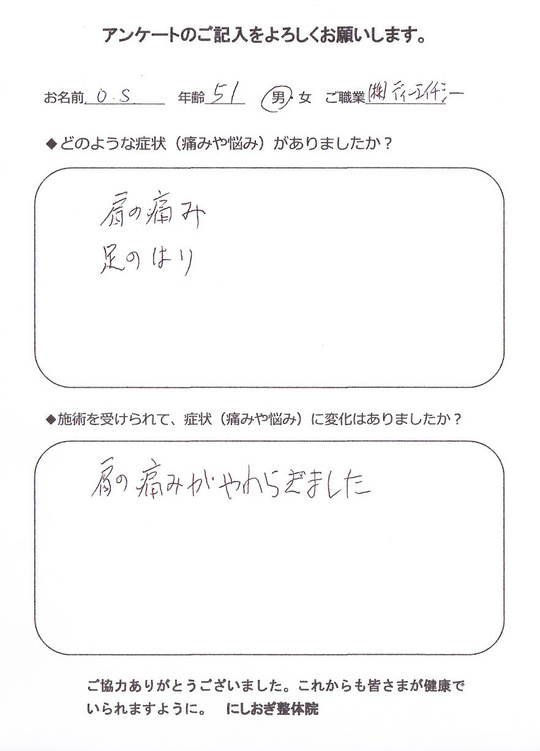 アンケートのご記入をよろしくお願いします。
お名前 O.S 年齢 51 男・女 ご職業 (株)ディーエイチシー
◆どのような症状（痛みや悩み）がありましたか？
肩の痛み
足のはり
◆施術を受けられて、症状（痛みや悩み）に変化はありましたか？
肩の痛みがやわらぎました
ご協力ありがとうございました。これからも皆さまが健康で
いられますように。 にしおぎ整体院